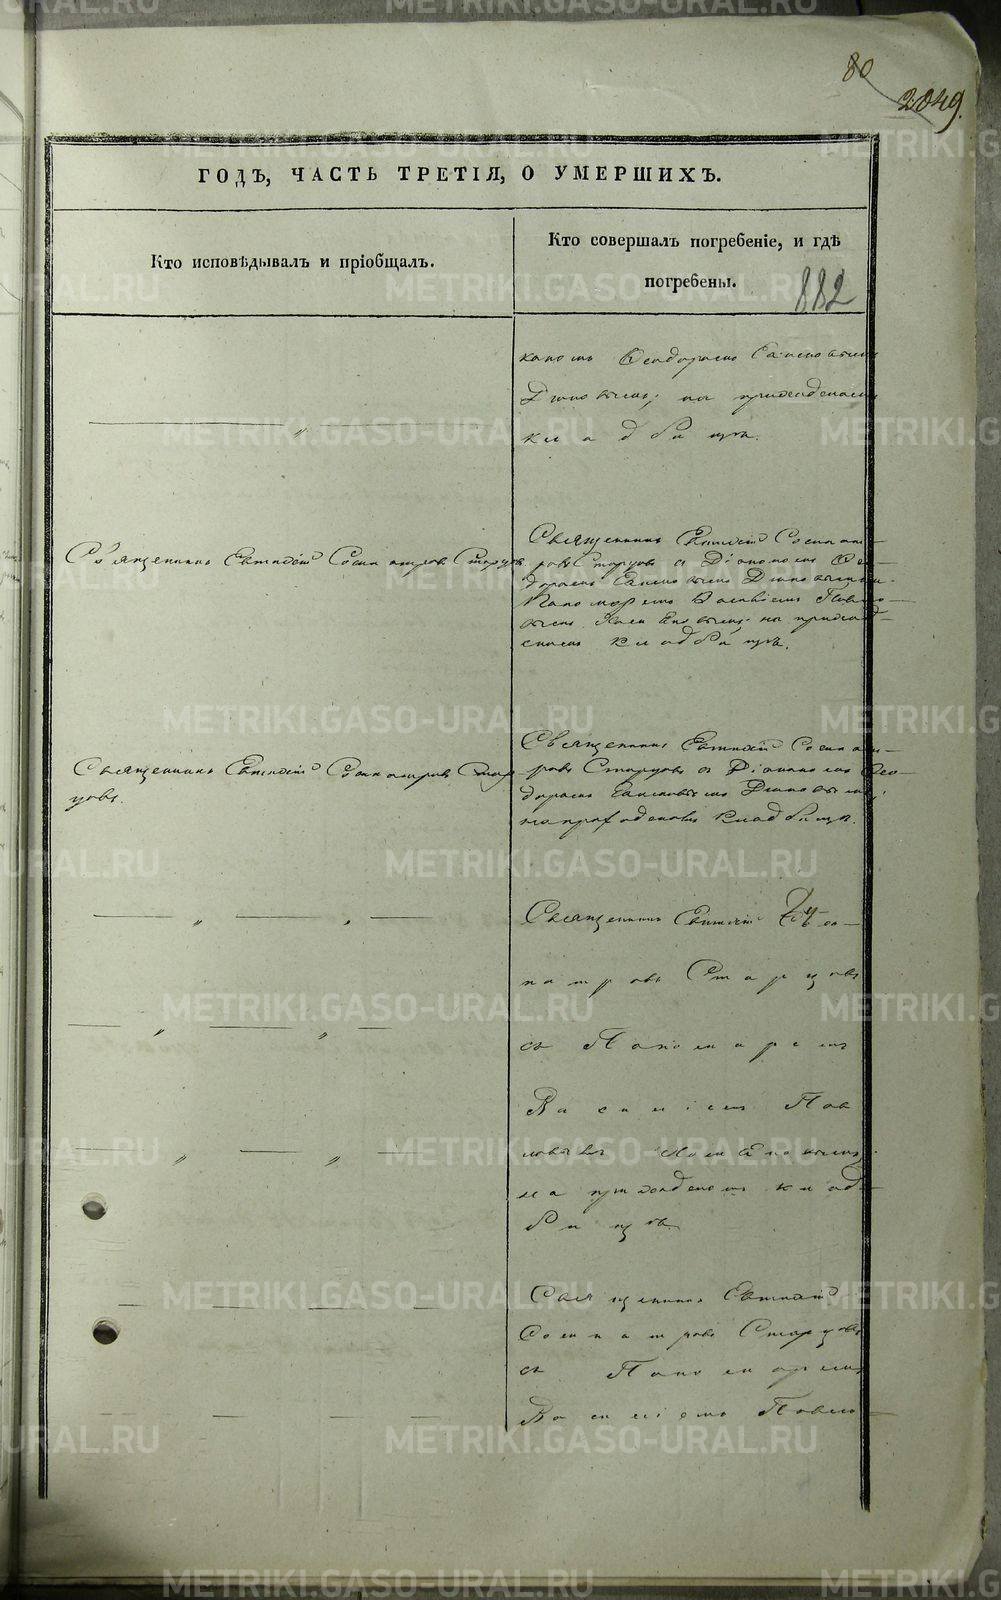 80
2049.
ГОДЪ, ЧАСТЬ ТРЕТІЯ, О УМЕРШИХЪ.
Кто исповѣдывалъ и пріобщалъ.
Кто совершалъ погребеніе, и гдѣ
погребены.
882
кономъ Ѳеодоромъ
на приходскомъ
кладбищѣ.
Священникъ Евтихій Сосипатровъ Старцовъ.
Священникъ Евтихій Сосипат-
ровъ Старцовъ съ Діакономъ Ѳео-
доромъ
Пономаремъ Василіемъ Павло-
вымъ на приход-
скомъ кладбищѣ.
Священникъ Евтихій Сосипатровъ Стар-
цовъ.
Священникъ Евтихій Сосипат-
ровъ Старцовъ съ Діакономъ Ѳео-
доромъ
на приходскомъ кладбищѣ.
Священникъ Евтихій Соси-
патровъ Старцовъ
съ Пономаремъ
Василіемъ Пав
ловымъ
на приходскомъ клад-
бищѣ
Священникъ Евтихій
Сосипатровъ Старцовъ
съ Пономаремъ
Василіемъ Павло-
METRIKI.GASO-URAL.RU